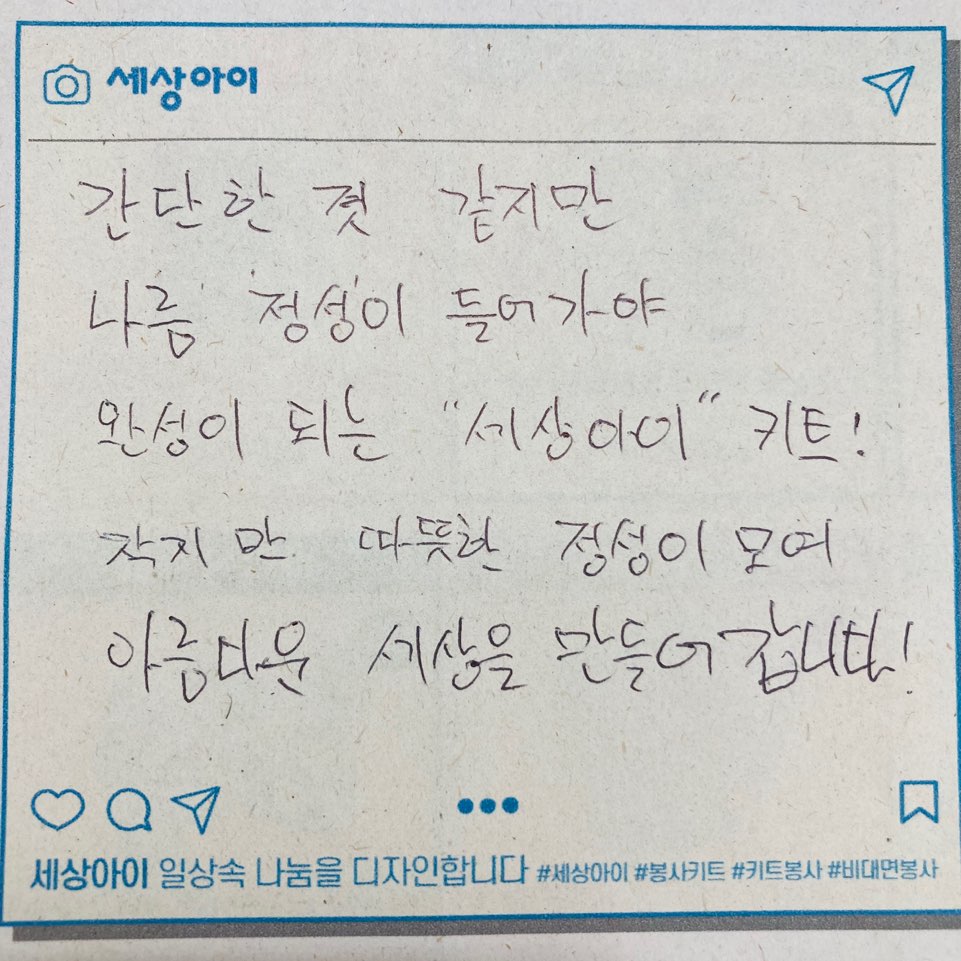 세상아이
간단한 것 같지만
나름 '정성'이 들어가야
완성이 되는 "세상아이" 키트!
작지만 따뜻한 정성이 모여
아름다운 세상을 만들어 갑니다!
세상아이 일상속 나눔을 디자인합니다 #세상아이 #봉사키트 #키트봉사 #비대면봉사